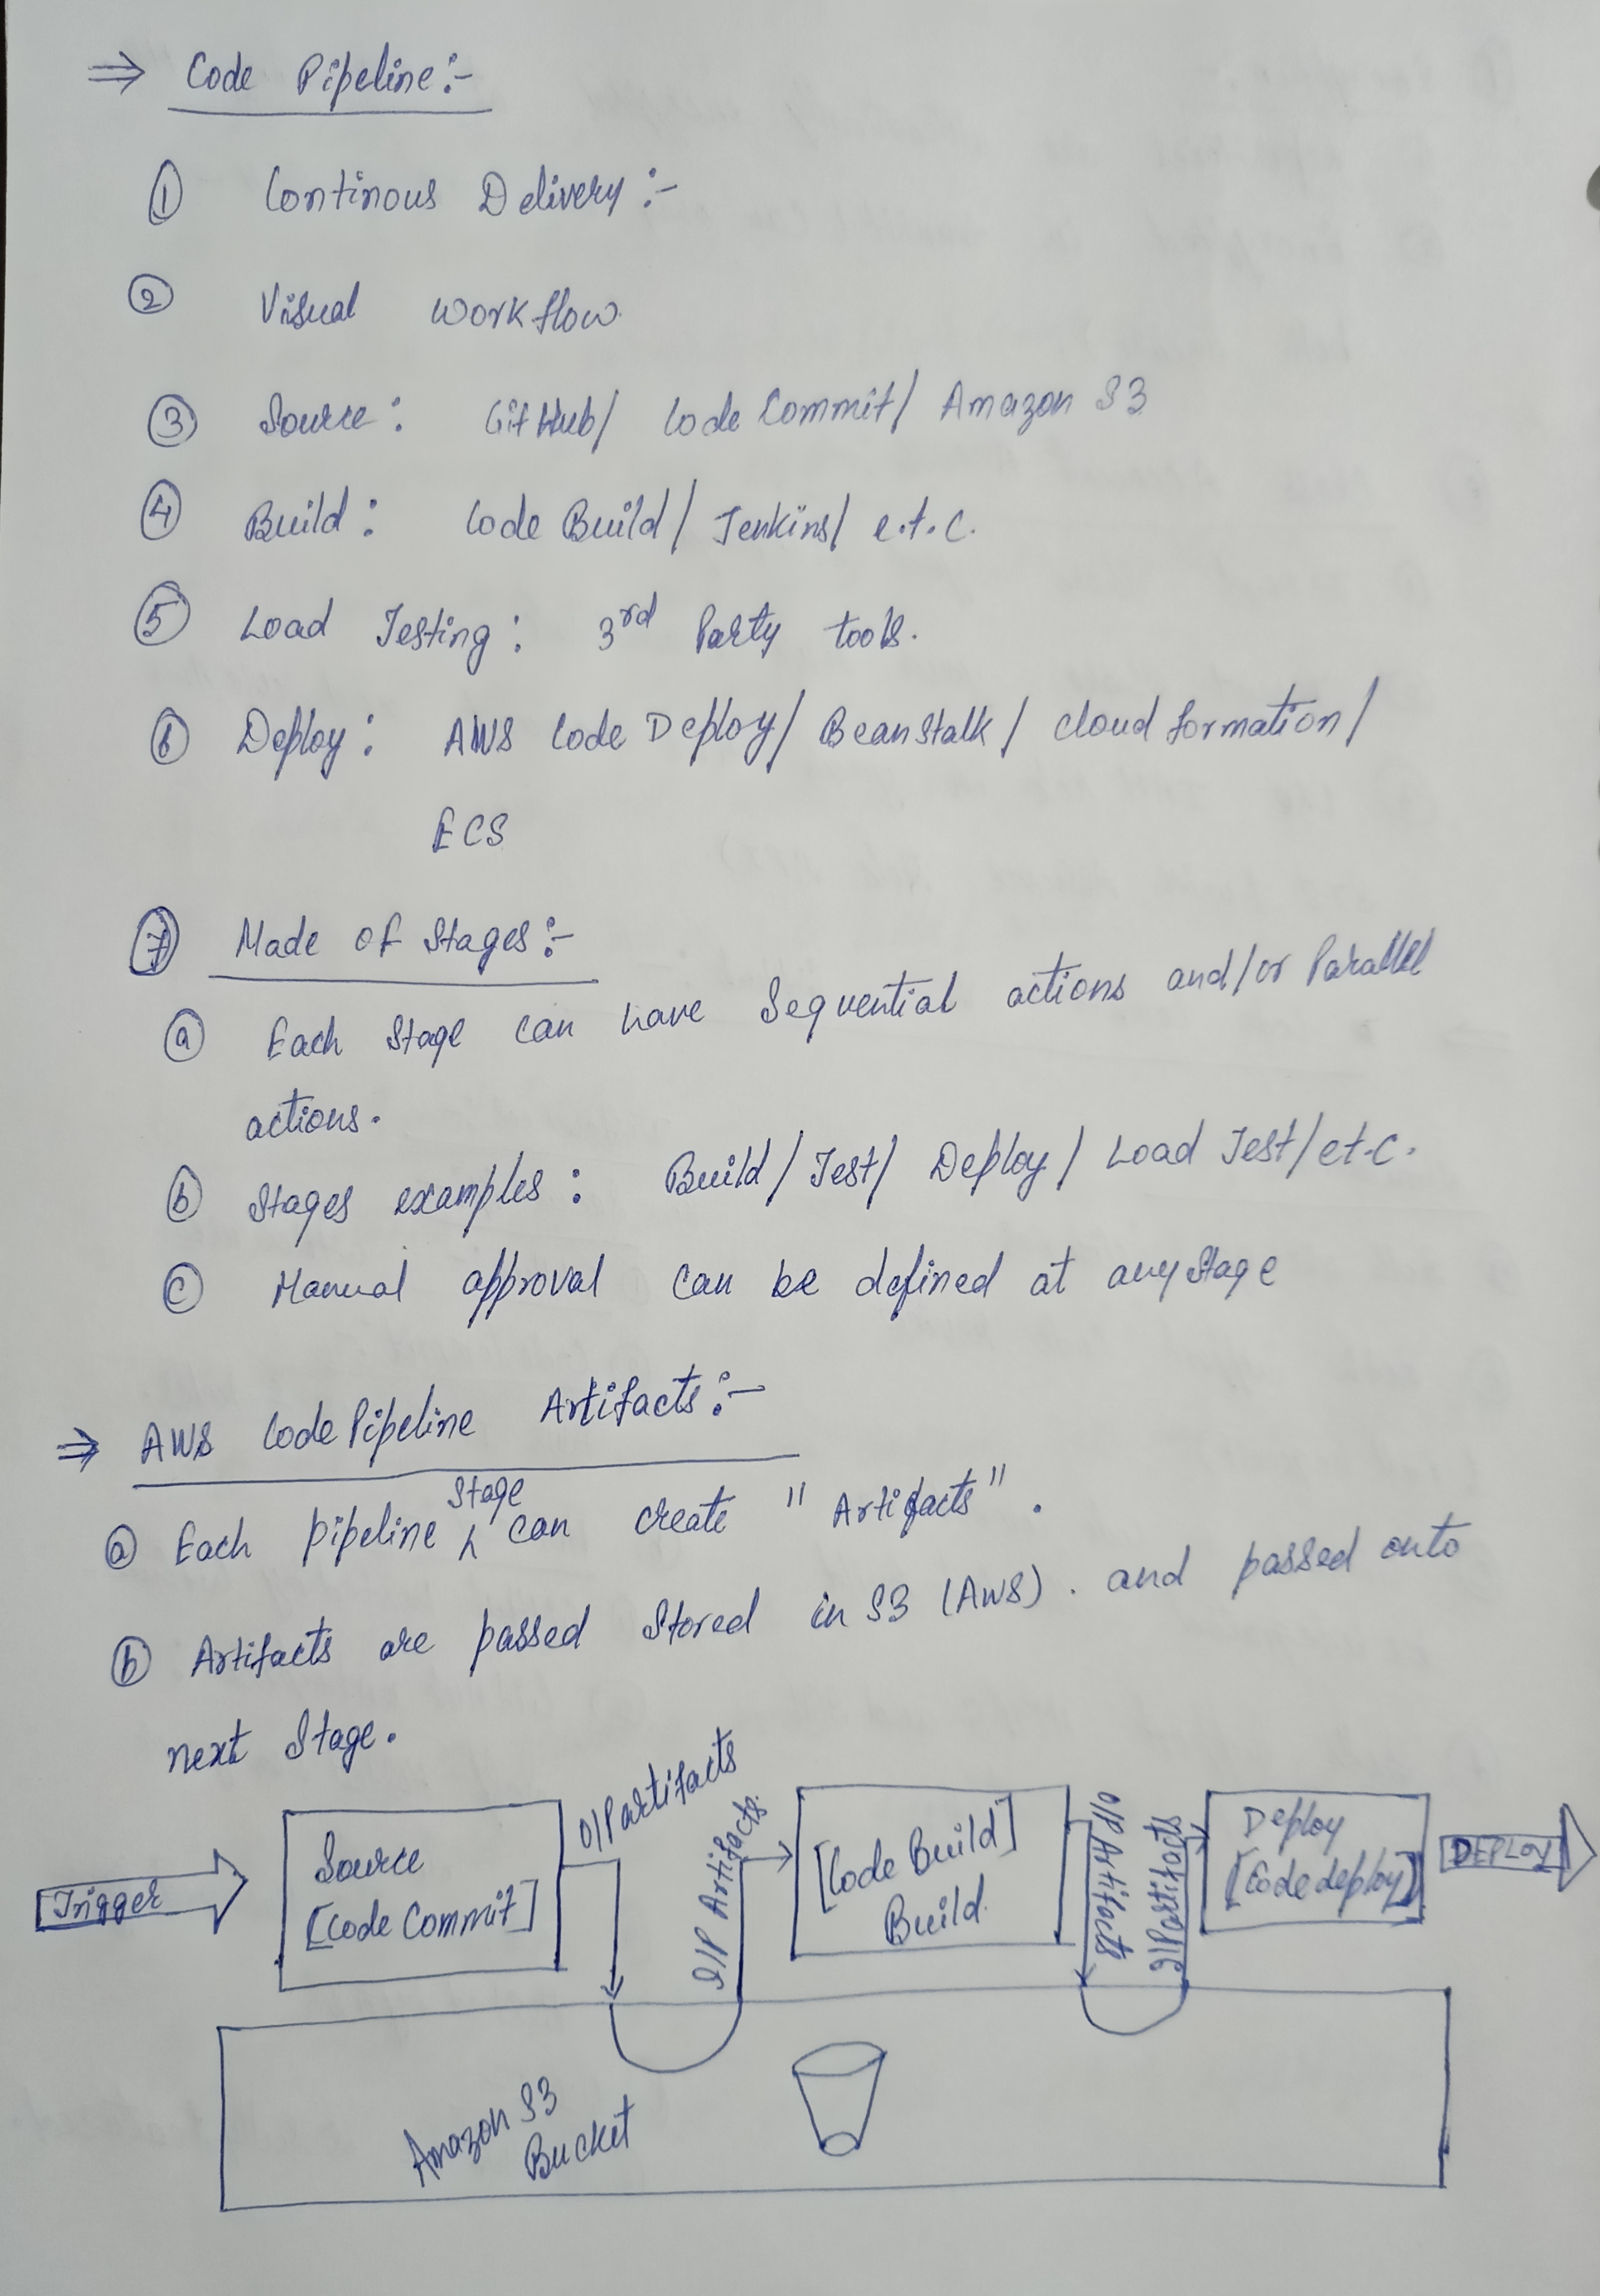 ⇒ Code Pipeline:-
① Continous Delivery:-
② Visual Workflow
③ Source: GitHub/ Code Commit/ Amazon S3
④ Build: Code Build/ Jenkins/ e.t.c.
⑤ Load Testing: 3rd Party tools.
⑥ Deploy: AWS Code Deploy/ BeanStalk/ cloud formation/
ECS
⑦ Made of Stages:-
ⓐ Each Stage can have Sequential actions and/or Parallel
actions.
ⓑ Stages examples: Build/ Test/ Deploy/ Load Test/ et.c.
ⓒ Manual approval can be defined at any Stage
⇒ AWS Code Pipeline Artifacts:-
Stage
ⓐ Each pipeline ʌ can create "Artifacts".
ⓑ Artifacts are passed Stored in S3 (AWS). and passed onto
next Stage.
Trigger
Source
[Code Commit]
O/P artifacts
I/P Artifacts.
[Code Build]
Build.
O/P Artifacts
I/P artifacts
Deploy
[Code deploy]
DEPLOY
Amazon S3
Bucket